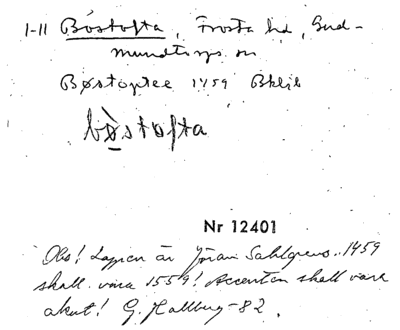 I-II Böstofta, Frosta hd, Gud-
mundtorps sn
Bøstoptee 1459 Bhlib
bøstofta
Nr 12401
Obs! Lappen är Jöran Sahlgrens. 1459
skall vara 1559! Accenten skall vara
akut! G. Hallberg -82.